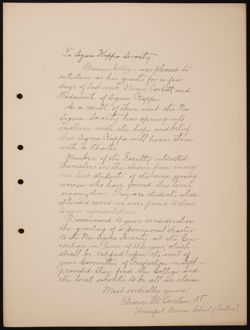 To Sigma Kappa Sorority:
Brenau College was pleased to
entertain as her guests for a few
days of last week, Misses Corbett and
of Sigma Kappa.
As a result of their visit the Nu
Sigma Sorority has sprung into
existence with the hope and belief
that Sigma Kappa will honor them
with a Charter.
Members of the Faculty interested
themselves in the choice from among
our best students of the nine young
women who have formed this local
organization. They are students whose
splendid record we were proud to show
to your representatives.
I recommend to your consideration
the granting of a provisional charter
to the Nu Sigma Sorority at the Con-
vention in June of this year, which
shall be ratified upon the visit of
your Committee of Inspection in
provided they find the College and
the local sorority to be all we claim.
Most cordially yours,
Florence M. Overton,
(Principal Brenau School of